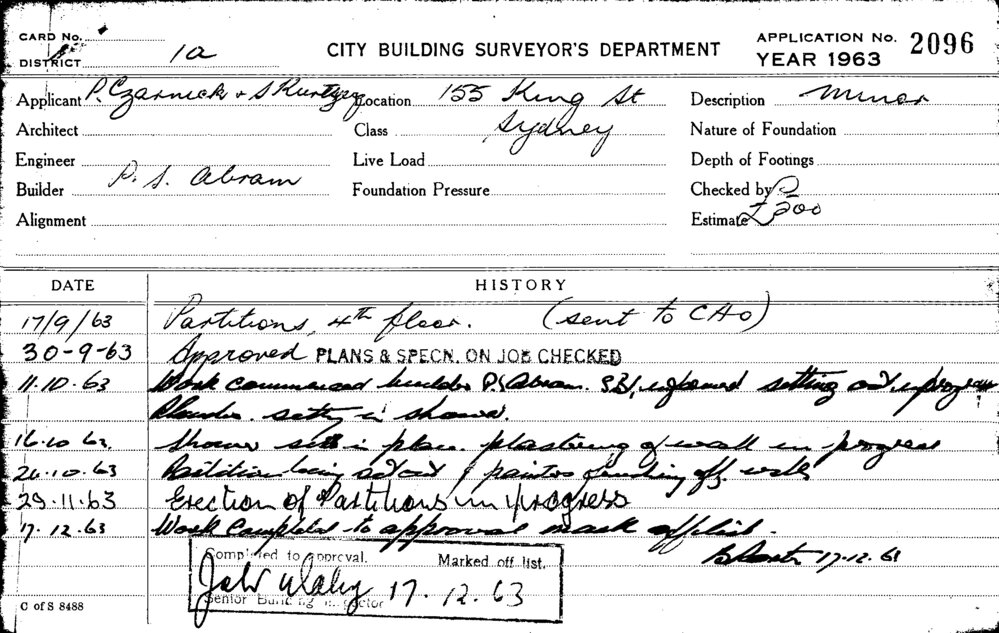 CARD No.
DISTRICT 1a
CITY BUILDING SURVEYOR'S DEPARTMENT
APPLICATION No. 2096
YEAR 1963
Applicant P. Czarnecki + S Kurtzer Location 155 King St Description Minor
Architect Class Sydney Nature of Foundation
Engineer Live Load Depth of Footings
Builder P. S. Abram Foundation Pressure Checked by
Alignment Estimate £200
DATE HISTORY
17/9/63 Partitions, 4th floor. (sent to CHO)
30-9-63 Approved PLANS & SPECN. ON JOB CHECKED
11.10.63 Work commenced builder P.S. Abram. informed setting out in progress
Plumber. setting in shower.
16.10 63. Shower in place. plastering of wall in progress
63 Partition being set out painters off. walls
29.11.63 Erection of Partitions in progress
17.12.63 Work Completed to approval mark off list.
17.12.63
Completed to approval. Marked off list.
17.12.63
Senior Building Inspector
C of S 8488